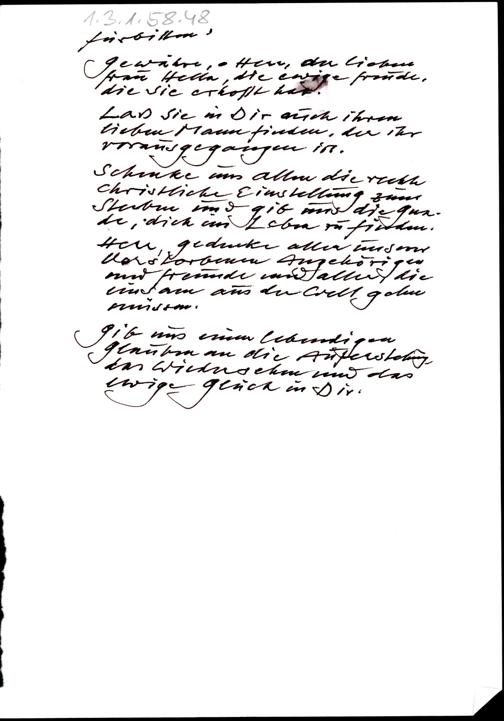 1.3.1.58.48
Fürbitten:
Gewähre, o Herr, der lieben
Frau Hella, die ewige Freude,
die sie erhofft hat.
Laß sie in Dir auch ihren
lieben Mann finden, der ihr
vorausgegangen ist.
Schenke uns allen die rechte
christliche Einstellung zum
Sterben und gib uns die Gna-
de, dich im Leben zu finden.
Herr, gedenke aller unserer
Verstorbenen Angehörigen
und Freunde und aller, die
einsam aus der Welt gehen
müssen.
Gib uns einen lebendigen
Glauben an die Auferstehung,
das Wiedersehen und das
ewige Glück in Dir.